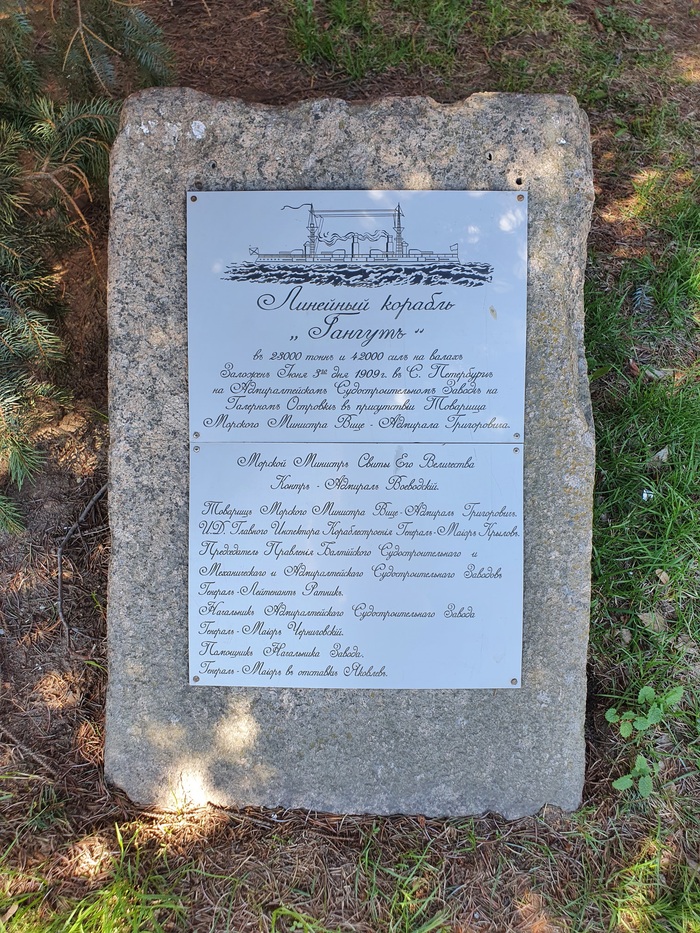 Линейный корабль
„ Гангутъ “
въ 23000 тоннъ и 42000 силъ на валахъ
Заложенъ Іюня 3го дня 1909 г. въ С. Петербургѣ
на Адмиралтейскомъ Судостроительномъ Заводѣ на
Галерномъ Островкѣ въ присутствіи Товарища
Морского Министра Вице - Адмирала Григоровича.
Морской Министръ Свиты Его Величества
Контръ - Адмиралъ Воеводскій.
Товарищъ Морского Министра Вице - Адмиралъ Григоровичъ.
И.Д. Главного Инспектора Кораблестроенія Генералъ - Маіоръ Крыловъ.
Предсѣдатель Правленія Балтійского Судостроительного и
Механического и Адмиралтейского Судостроительного Заводовъ
Генералъ - Лейтенантъ Ратникъ.
Начальникъ Адмиралтейского Судостроительного Завода
Генералъ - Маіоръ Черниговскій.
Помощникъ Начальника Завода.
Генералъ - Маіоръ въ отставкѣ Яковлевъ.